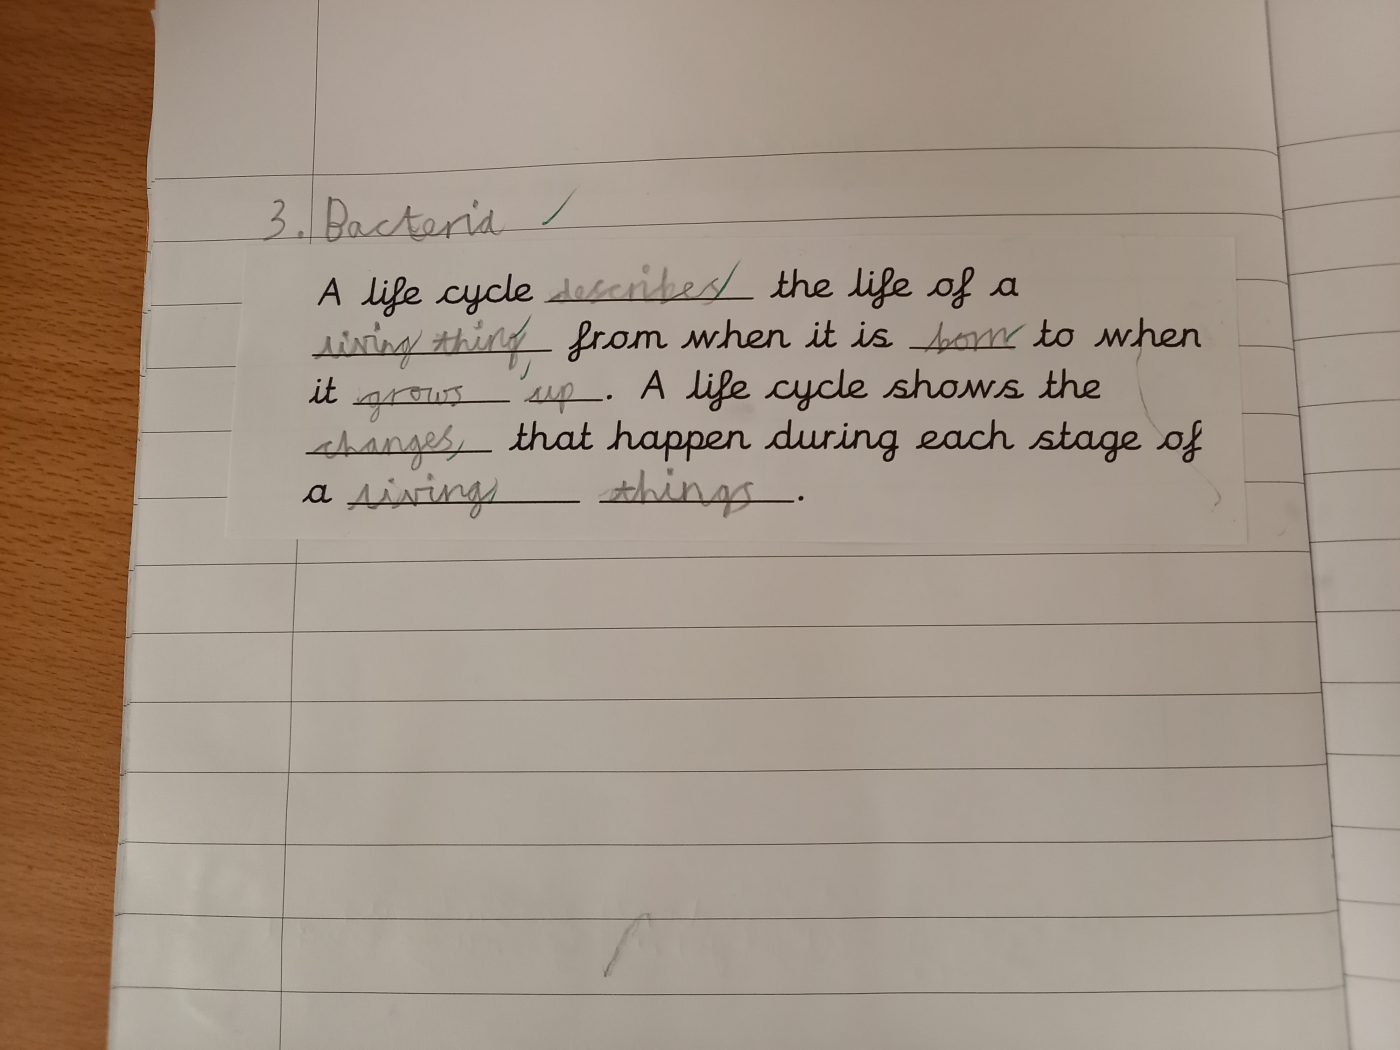 3. Bacteria
A life cycle describes the life of a
living thing from when it is born to when
it grows up. A life cycle shows the
changes that happen during each stage of
a living things.